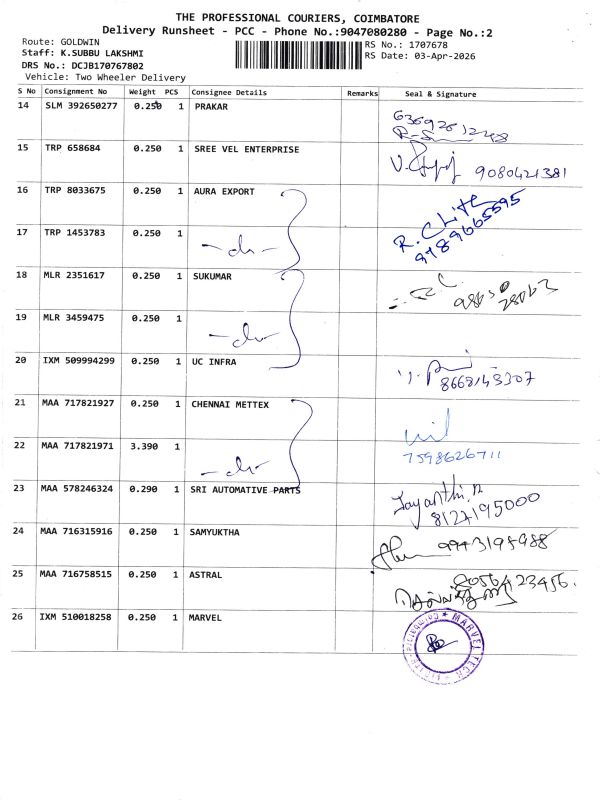 THE PROFESSIONAL COURIERS, COIMBATORE
Delivery Runsheet - PCC - Phone No.:9047080280 - Page No.:2
Route: GOLDWIN
RS No.: 1707678
Staff: K.SUBBU LAKSHMI
RS Date: 03-Apr-2026
DRS No.: DCJB170767802
Vehicle: Two Wheeler Delivery
S No Consignment No Weight PCS Consignee Details Remarks Seal & Signature
14 SLM 392650277 0.250 1 PRAKAR
15 TRP 658684 0.250 1 SREE VEL ENTERPRISE 9080421381
16 TRP 8033675 0.250 1 AURA EXPORT R. Chitra 9789665595
17 TRP 1453783 0.250 1 -do-
18 MLR 2351617 0.250 1 SUKUMAR
19 MLR 3459475 0.250 1 -do-
20 IXM 509994299 0.250 1 UC INFRA 8668143307
21 MAA 717821927 0.250 1 CHENNAI METTEX 7598626711
22 MAA 717821971 3.390 1 -do-
23 MAA 578246324 0.290 1 SRI AUTOMATIVE PARTS Jayanthi.R 8124195000
24 MAA 716315916 0.250 1 SAMYUKTHA
25 MAA 716758515 0.250 1 ASTRAL 8056423456.
26 IXM 510018258 0.250 1 MARVEL
MARVEL TECH